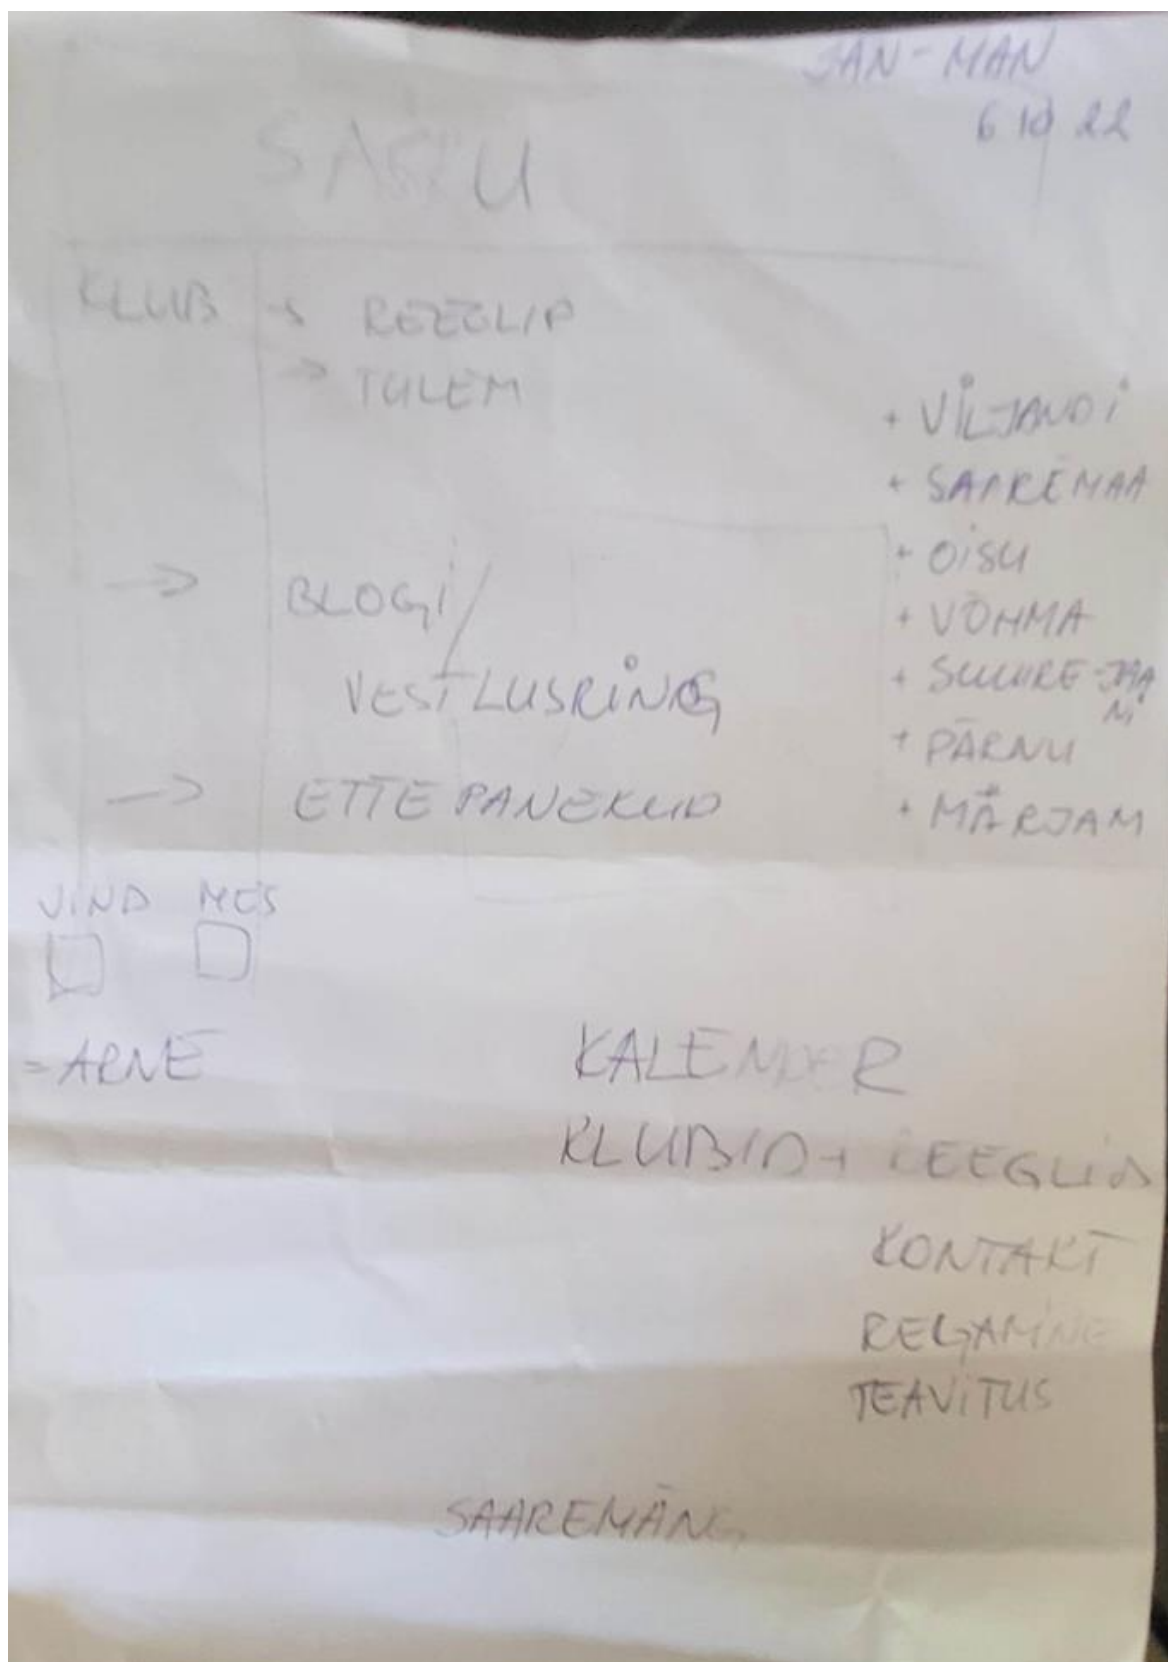 JAN-MAN
6 10 22
SASKU
KLUB → REEGLID
→ TULEM
→ BLOGI/
VESTLUSRING
→ ETTEPANEKUD
+ VILJANDI
+ SAAREMAA
+ OISU
+ VÕHMA
+ SUURE-JAA
NI
+ PÄRNU
+ MÄRJAM
VIND MES
- ARNE
KALENDER
KLUBID + REEGLID
KONTAKT
REGAMINE
TEAVITUS
SAAREMÄNG